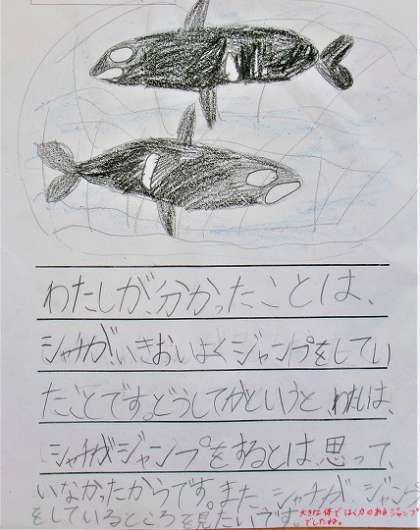 わたしが、分かったことは、
シャチが、いきおいよくジャンプをしてい
たことです。どうしてかというと、わたしは、
シャチがジャンプをするとは、思って、
いなかったからです。また、シャチが、ジャンプ
をしているところを見たいです。
大きな体ではく力のあるジャンプ
でしたね。